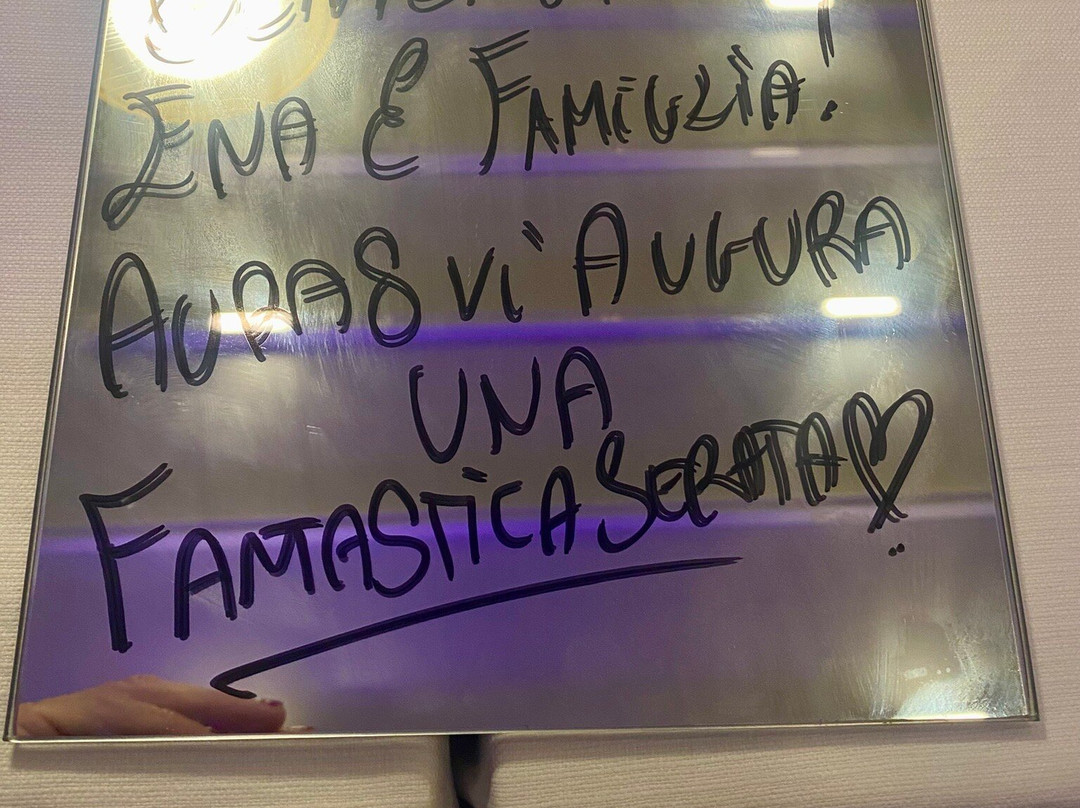 ENA E FAMIGLIA!
AUDAS VI AUGURA
UNA
FANTASTICA SERATA